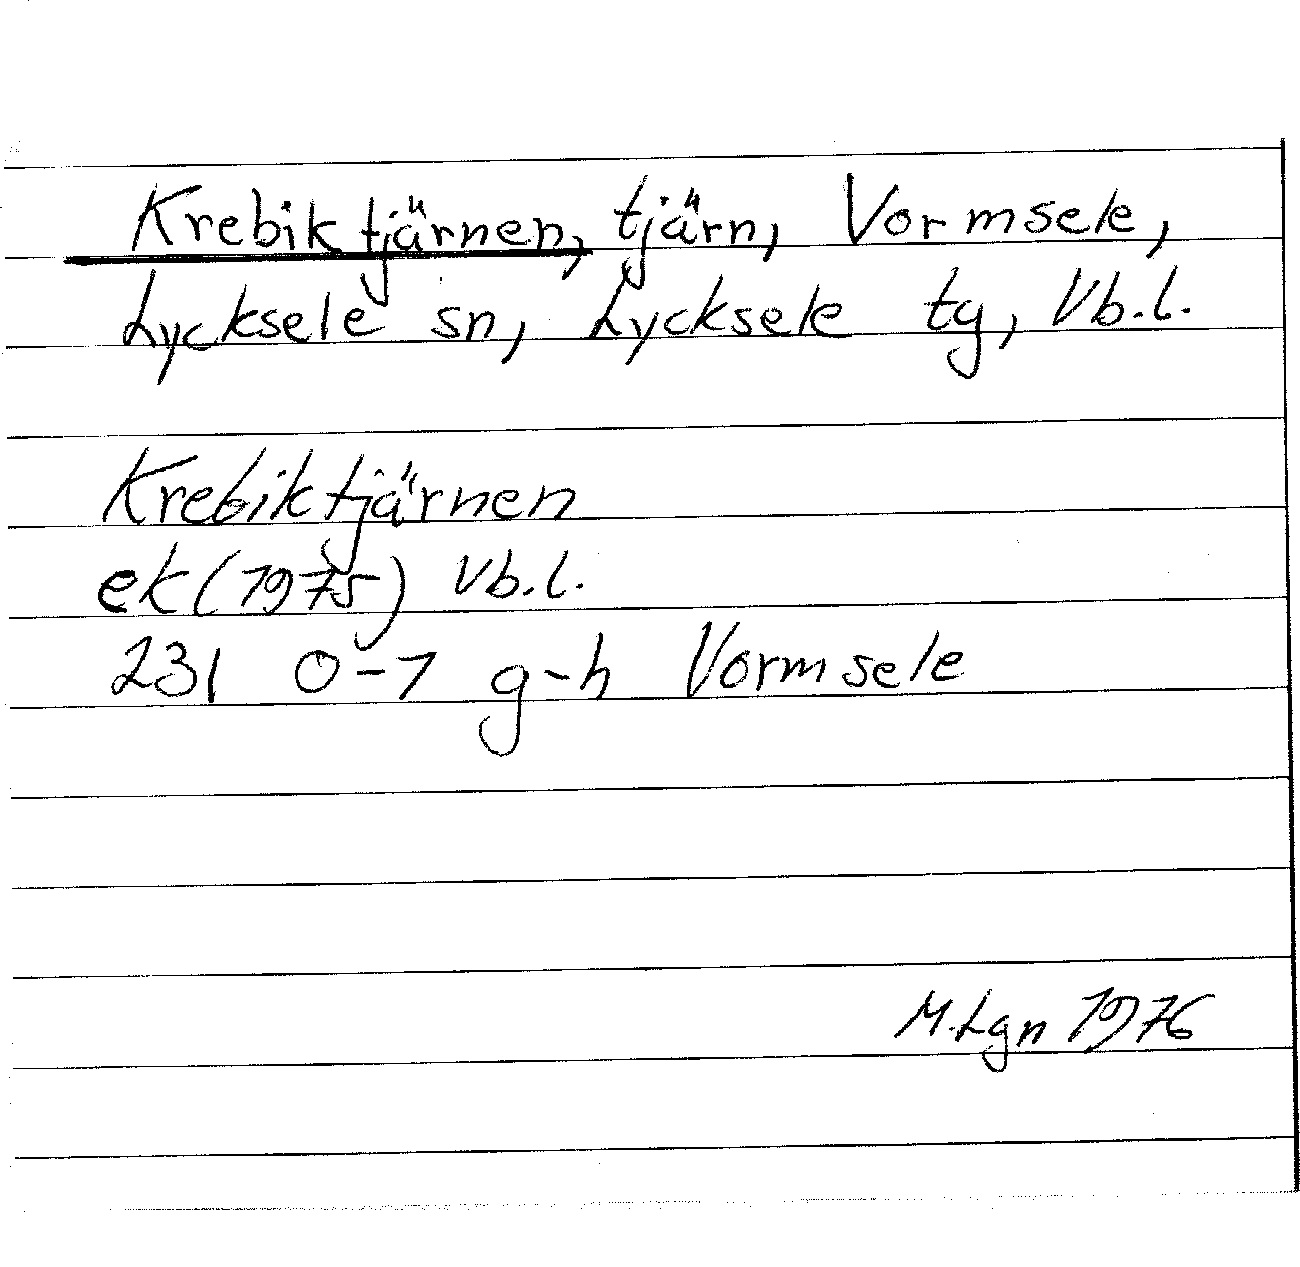 Krebiktjärnen, tjärn, Vormsele,
Lycksele sn, Lycksele tg, Vb.l.
Krebiktjärnen
ek (1975) Vb.l.
231 0-1 g-h Vormsele
M.Lgn 1976